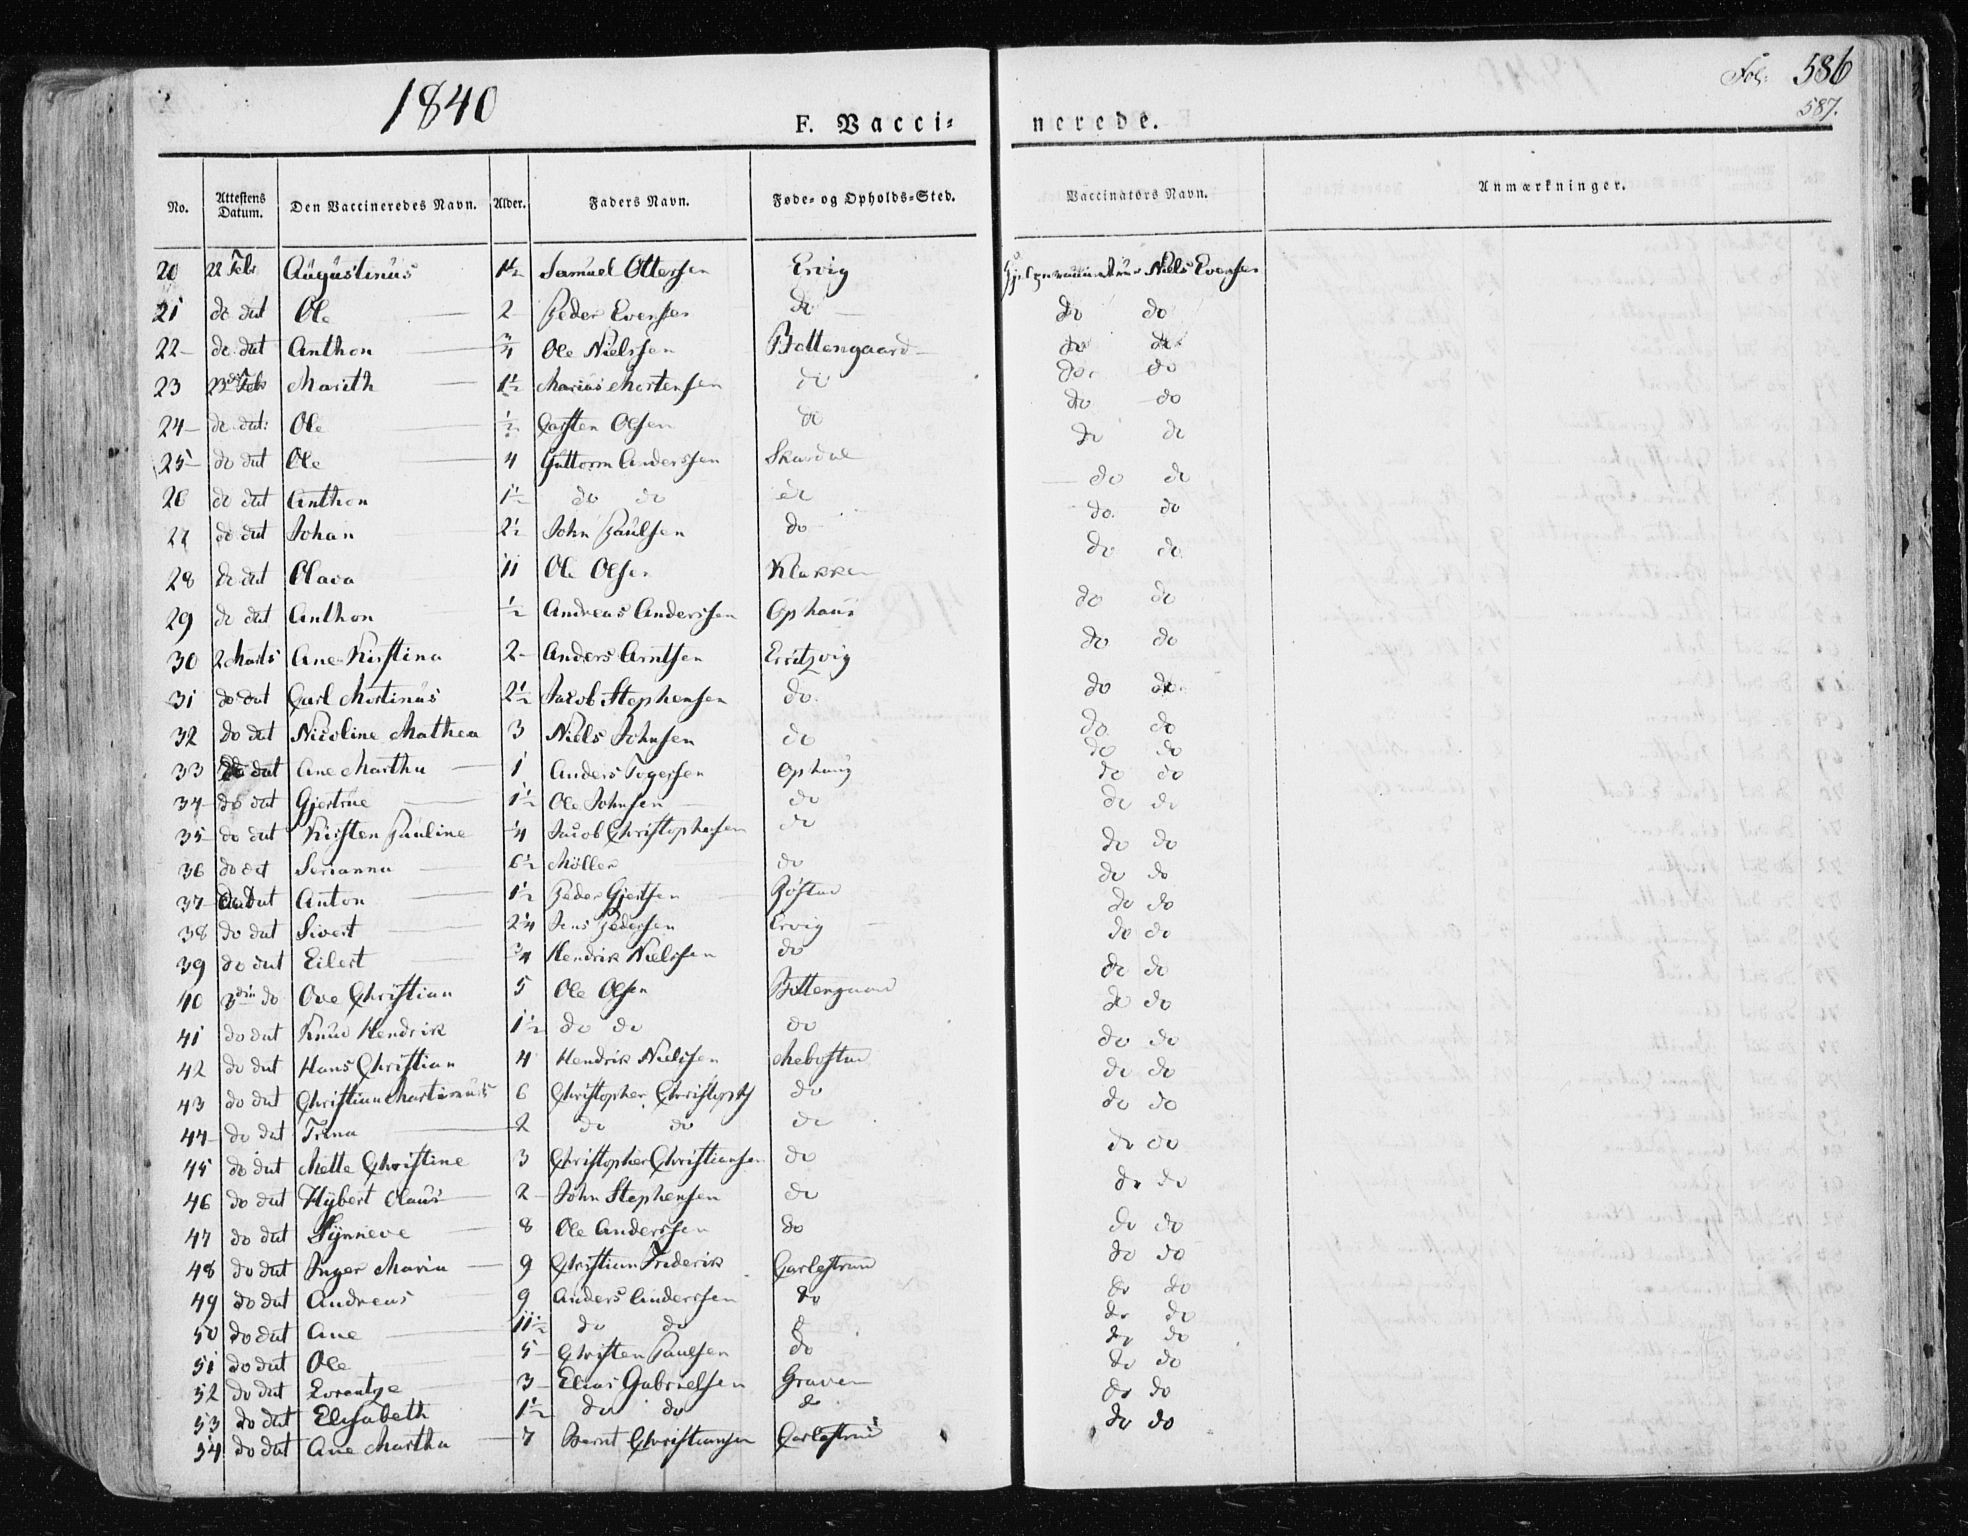 1840
Fol: 586
587.
F. Vacci- nerede.
No. Attestens Datum. Den Vaccineredes Navn. Alder. Faders Navn. Føde- og Opholds-Sted. Vaccinateurs Navn. Anmærkninger.
20 22 Febr Augustinus 1½ Samuel Ottersen Ervig Niels Evensen
21 do dat Ole 2 Peder Evensen do do do
22 do dat Anthon ¾ Ole Nielssen Bottengaard do do
23 23de Febr Marith 1½ Marius Mortensen do do do
24 do dat: Ole ½ Carsten Olsen do do do
25 do dat Ole 4 Guttorm Anderssen Skardal do do
26 do dat Anthon 1½ do do do do do
27 do dat Johan 2½ John Paulsen do do do
28 do dat Olava 11 Ole Olsen Klakken do do
29 do dat Anthon ½ Andreas Anderssen Ophaug do do
30 2 Marts Ane Kirstina 2 Anders Arntsen Ervig do do
31 do dat Carl Mortinus 2½ Jacob Stephensen do do do
32 do dat Nicoline Mathea 3 Niels Johnsen do do do
33 do dat Ane Martha 1 Anders Togersen Ophaug do do
34 do dat Gjertrue 1½ Ole Johnsen do do do
35 do dat Kirsten Pauline ¼ Jacob Christophersen do do do
36 do dat Serianna 6½ Möller do do do
37 do dat Anton 1½ Peder Gjertsen Röstad do do
38 do dat Sivert 2¼ Jens Pedersen Ervig do do
39 do dat Eilert ¾ Hendrik Nielssen do do do
40 3die do Ove Christian 5 Ole Olsen Bottengaard do do
41 do dat Knud Hendrik 1½ do do do do do
42 do dat Hans Christian 4 Hendrik Nielssen Mebostad do do
43 do dat Christian Martinus 6 Christopher Christoph do do do
44 do dat Trina 2 do do do do do
45 do dat Mette Christine 3 Christopher Christiansen do do do
46 do dat Hybert Olaus 2 John Stephensen do do do
47 do dat Synneve 8 Ole Anderssen do do do
48 do dat Inger Maria 9 Christian Friderik Garlestrand do do
49 do dat Andreas 9 Anders Anderssen do do do
50 do dat Ane 11½ do do do do do
51 do dat Ole 5 Christen Paulsen do do do
52 do dat Lorentze 3 Elias Gabrielsen Graven do do
53 do dat Elisabeth 1½ do do do do do
54 do dat Ane Martha 7 Bernt Christiansen Garlestrand do do